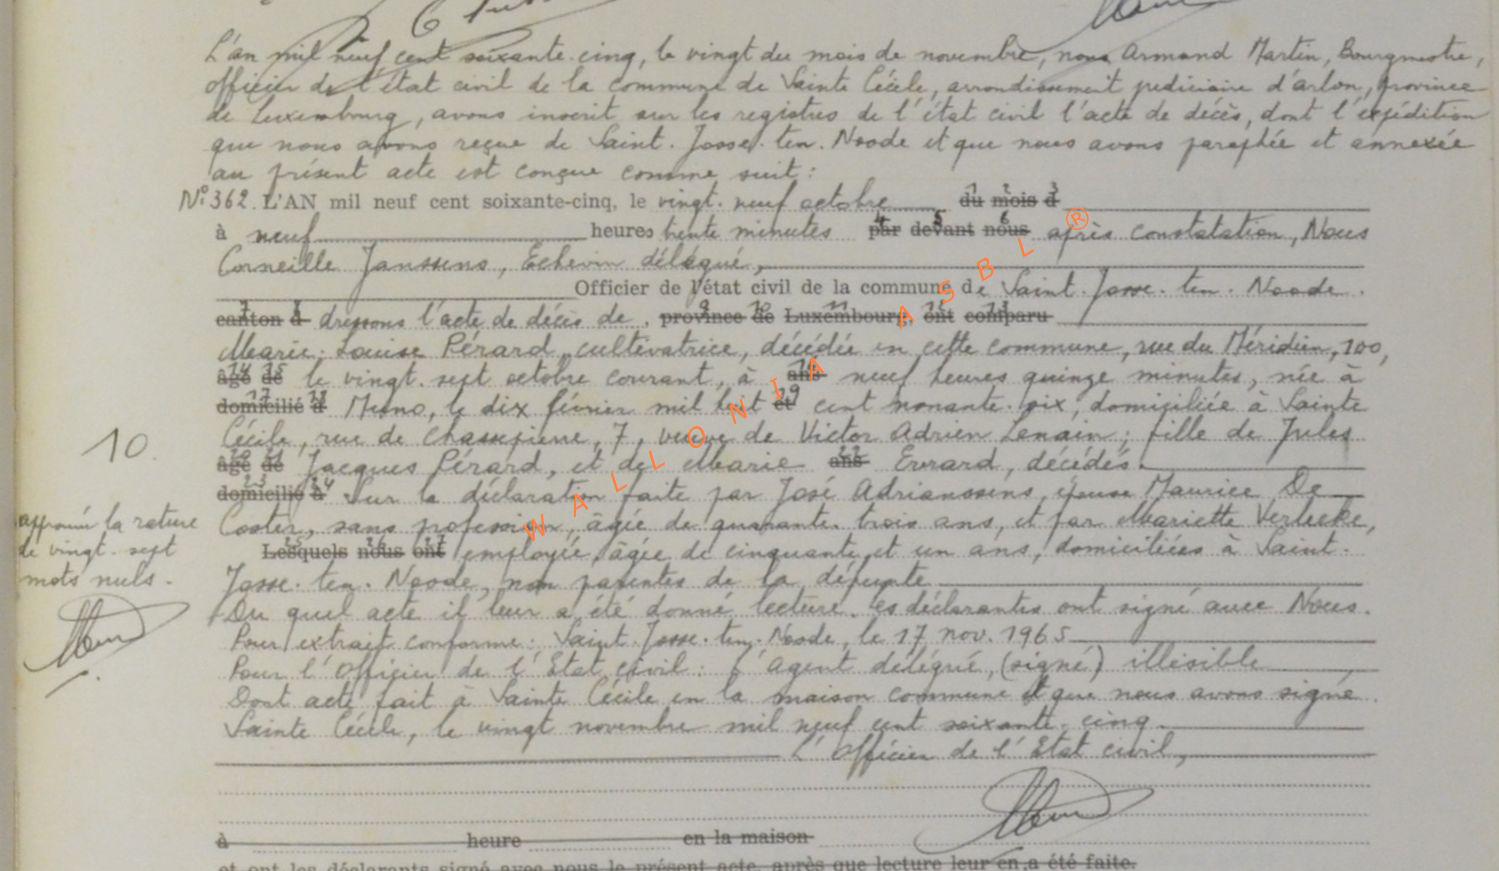 L'an mil neuf cent soixante-cinq, le vingt du mois de novembre, nous Armand Martin, Bourgmestre,
officier de l'état civil de la commune de Sainte Cécile, arrondissement judiciaire d'Arlon, province
de Luxembourg, avons inscrit sur les registres de l'état civil l'acte de décès, dont l'expédition
que nous avons reçue de Saint-Josse-ten-Noode et que nous avons paraphée et annexée
au présent acte est conçue comme suit :
N° 362. L'AN mil neuf cent soixante-cinq, le vingt-neuf octobre du mois d
à neuf heures trente minutes par devant nous après constatation, Nous
Corneille Janssens, Echevin délégué,
Officier de l'état civil de la commune de Saint-Josse-ten-Noode.
canton d dressons l'acte de décès de province de Luxembourg, ont comparu
Marie-Louise Pérard, cultivatrice, décédée en cette commune, rue du Méridien, 100,
âgé de le vingt-sept octobre courant, à ans neuf heures quinze minutes, née à
domicilié à Muno, le dix février mil huit et cent nonante-six, domiciliée à Sainte
Cécile, rue de Chassepierre, 7, veuve de Victor Adrien Lenain ; fille de Jules
10.
âgé de Jacques Pérard, et de Marie ans Evrard, décédés.
domicilié à Sur la déclaration faite par José Adrianssens, épouse Maurice De
Coster, sans profession, âgée de quarante-trois ans, et par Mariette Verlecke,
Lesquels nous ont employée, âgée de cinquante et un ans, domiciliées à Saint-
Josse-ten-Noode, non parentes de la défunte
approuvé la rature
de vingt-sept
mots nuls.
Du quel acte il leur a été donné lecture. Les déclarantes ont signé avec Nous.
Pour extrait conforme : Saint-Josse-ten-Noode, le 17 nov. 1965
Pour l'Officier de l'Etat civil : l'agent délégué, (signé) illisible
Dont acte fait à Sainte Cécile en la maison commune et que nous avons signé
Sainte Cécile, le vingt novembre mil neuf cent soixante-cinq.
L'Officier de l'Etat civil,
à heure en la maison
et ont les déclarants signé avec nous le présent acte, après que lecture leur en a été faite.
WALLONIA ASBL ®